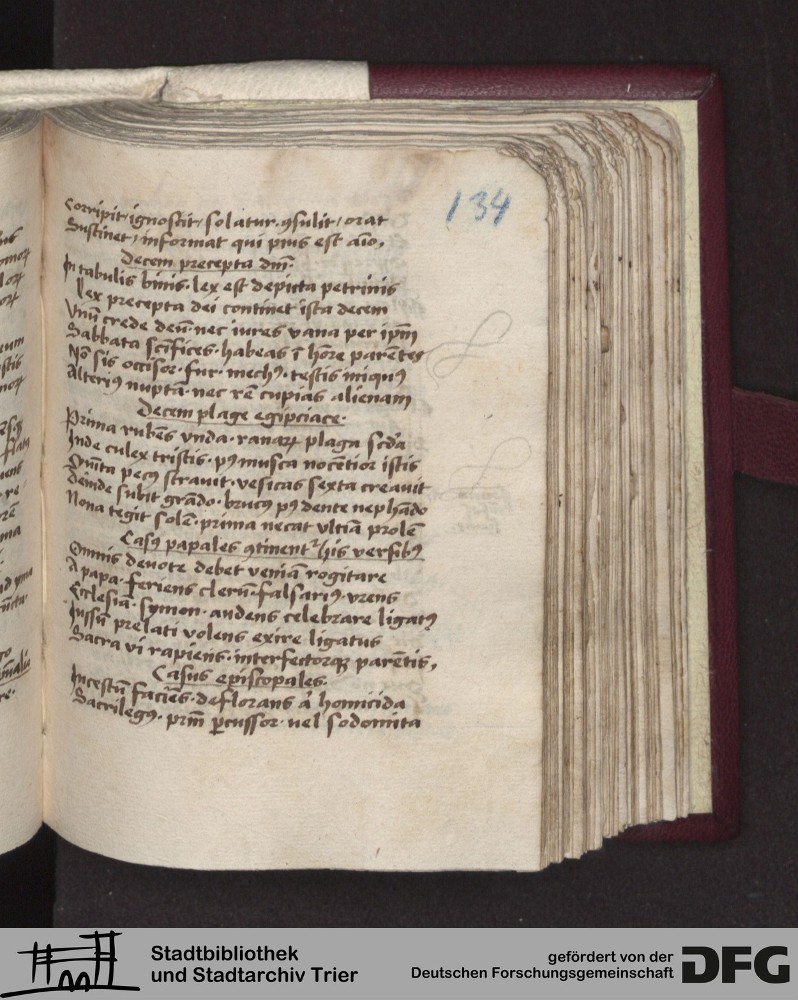 134
Corripit, ignoscit, solatur, ꝯsulit, orat
Sustinet, informat qui pius est aīo.
Decem precepta dnī.
In tabulis binis lex est depicta petrinis
Lex precepta dei continet ista decem
Vnū crede deū nec iures vana per ipm̄
Sabbata scīfices habeas ī hōre parētes
Nō sis occisor fur mechꝰ testis iniquꝰ
Alteriꝰ nuptā nec rē cupias alienam
Decem plage egipciace
Prima rubēs vnda ranaꝝ plaga scd̄a
Inde culex tristis pꝰ musca nocētior istis
Qūīta pecꝰ strauit vesicas sexta creauit
Deīde subit grādo brucꝰ pꝰ dente nephādo
Nona tegit solē prima necat vltīā prolē
Casꝰ papales ꝯtinent᷑ his versibꝰ
Omnis deuote debet veniā rogitare
A papa feriens clerū falsariꝰ vrens
Ecclesiā symon audens celebrare ligatꝰ
Jussū prelati volens exire ligatus
Sacra vi rapiens interfectorqꝫ parētis,
Casus episcopales
Incestū faciēs deflorans aͭ homicida
Sacrilegꝰ prm̄ ꝑcussor vel sodomita
Stadtbibliothek
und Stadtarchiv Trier
gefördert von der
Deutschen Forschungsgemeinschaft
DFG